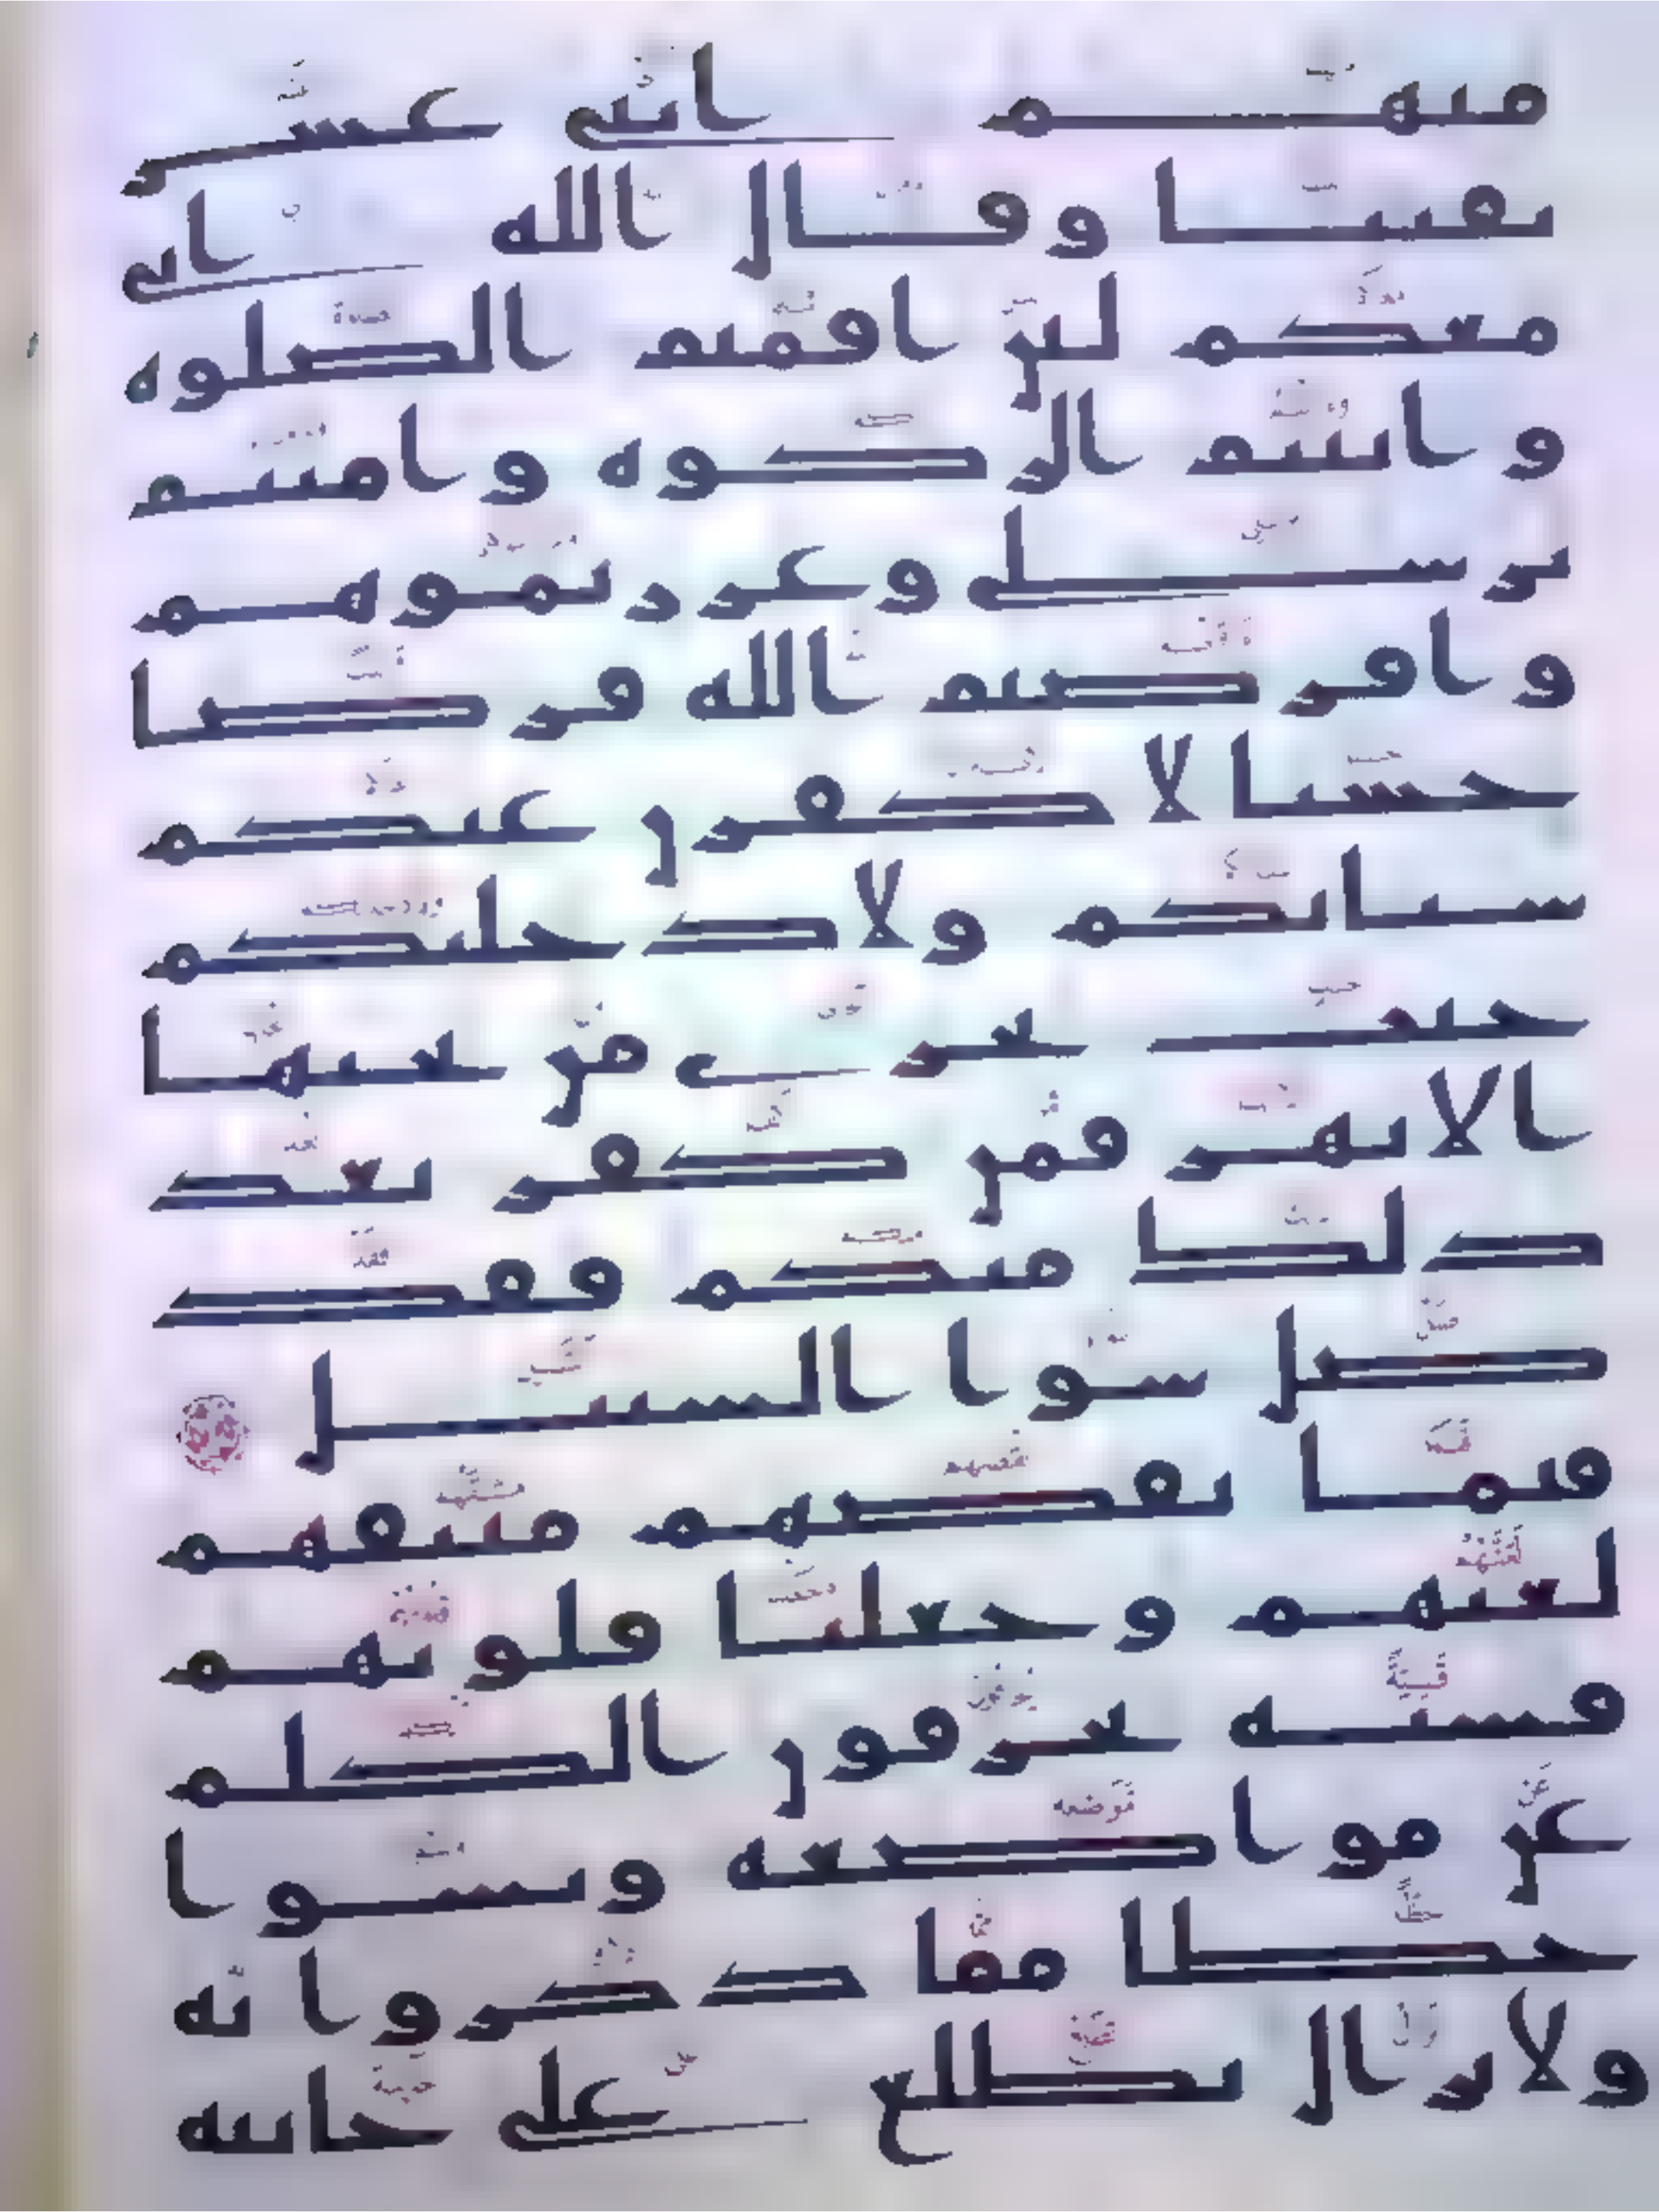 منهم اثنى عشر
نقيبا وقال الله انى
معكم لئن اقمتم الصلوه
واتيتم الزكوه وامنتم
برسلى وعزرتموهم
واقرضتم الله قرضا
حسنا لاكفرن عنكم
سياتكم ولادخلنكم
جنت تجرى من تحتها
الانهر فمن كفر بعد
ذلك منكم فقد
ضل سوا السبيل
فبما نقضهم ميثقهم
لعنهم وجعلنا قلوبهم
قسيه يحرفون الكلم
عن مواضعه ونسوا
حظا مما ذكروا به
ولا تزال تطلع على خاينه